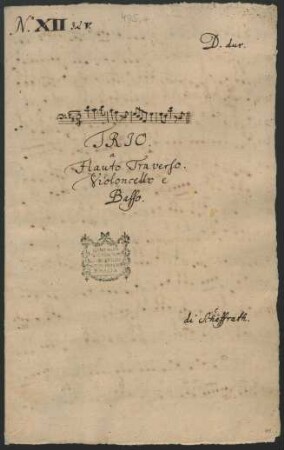 N. XII
D. dur.
TRIO.
a
Flauto Traverso.
Violoncello e
Basso.
di Schaffrath.